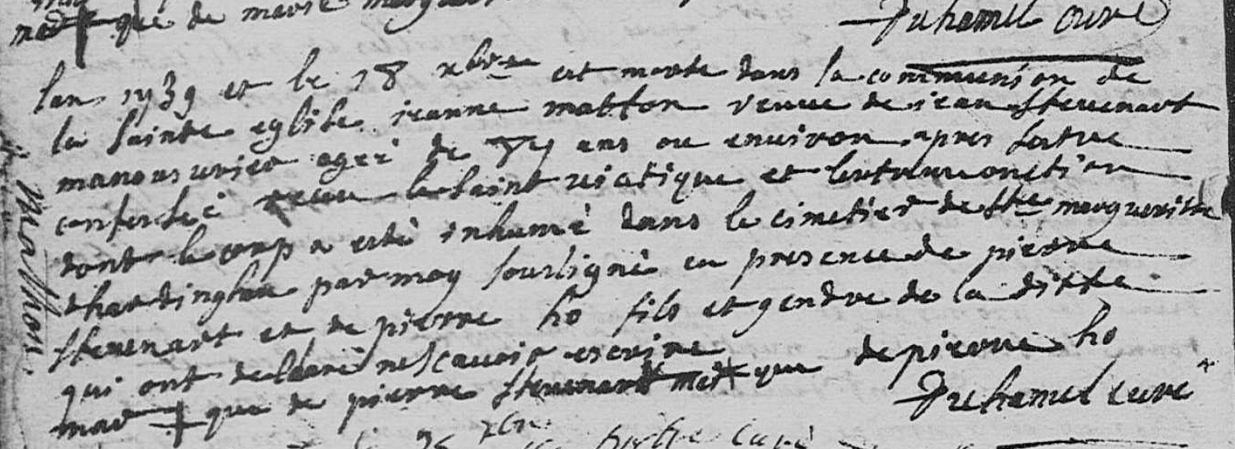 mar que de marie
Duhamel Curé
lan 1739 et le 28 xbre est morte dans la communion de
la sainte eglise jeanne matton veuve de jean stevenart
manouurier ageé de ans ou environ apres satre
confesseé receu le saint viatique et lextreme onction
dont le corp a esté inhumé dans le cimetier de ste margueritte
dhardinghen par moy soussigné en presence de pierre
stevenart et de pierre ho fils et gendre de la ditte
qui ont declaré ne scavoir escrire
mar que de pierre stevenart mar que de pierre ho
Duhamel curé
matton